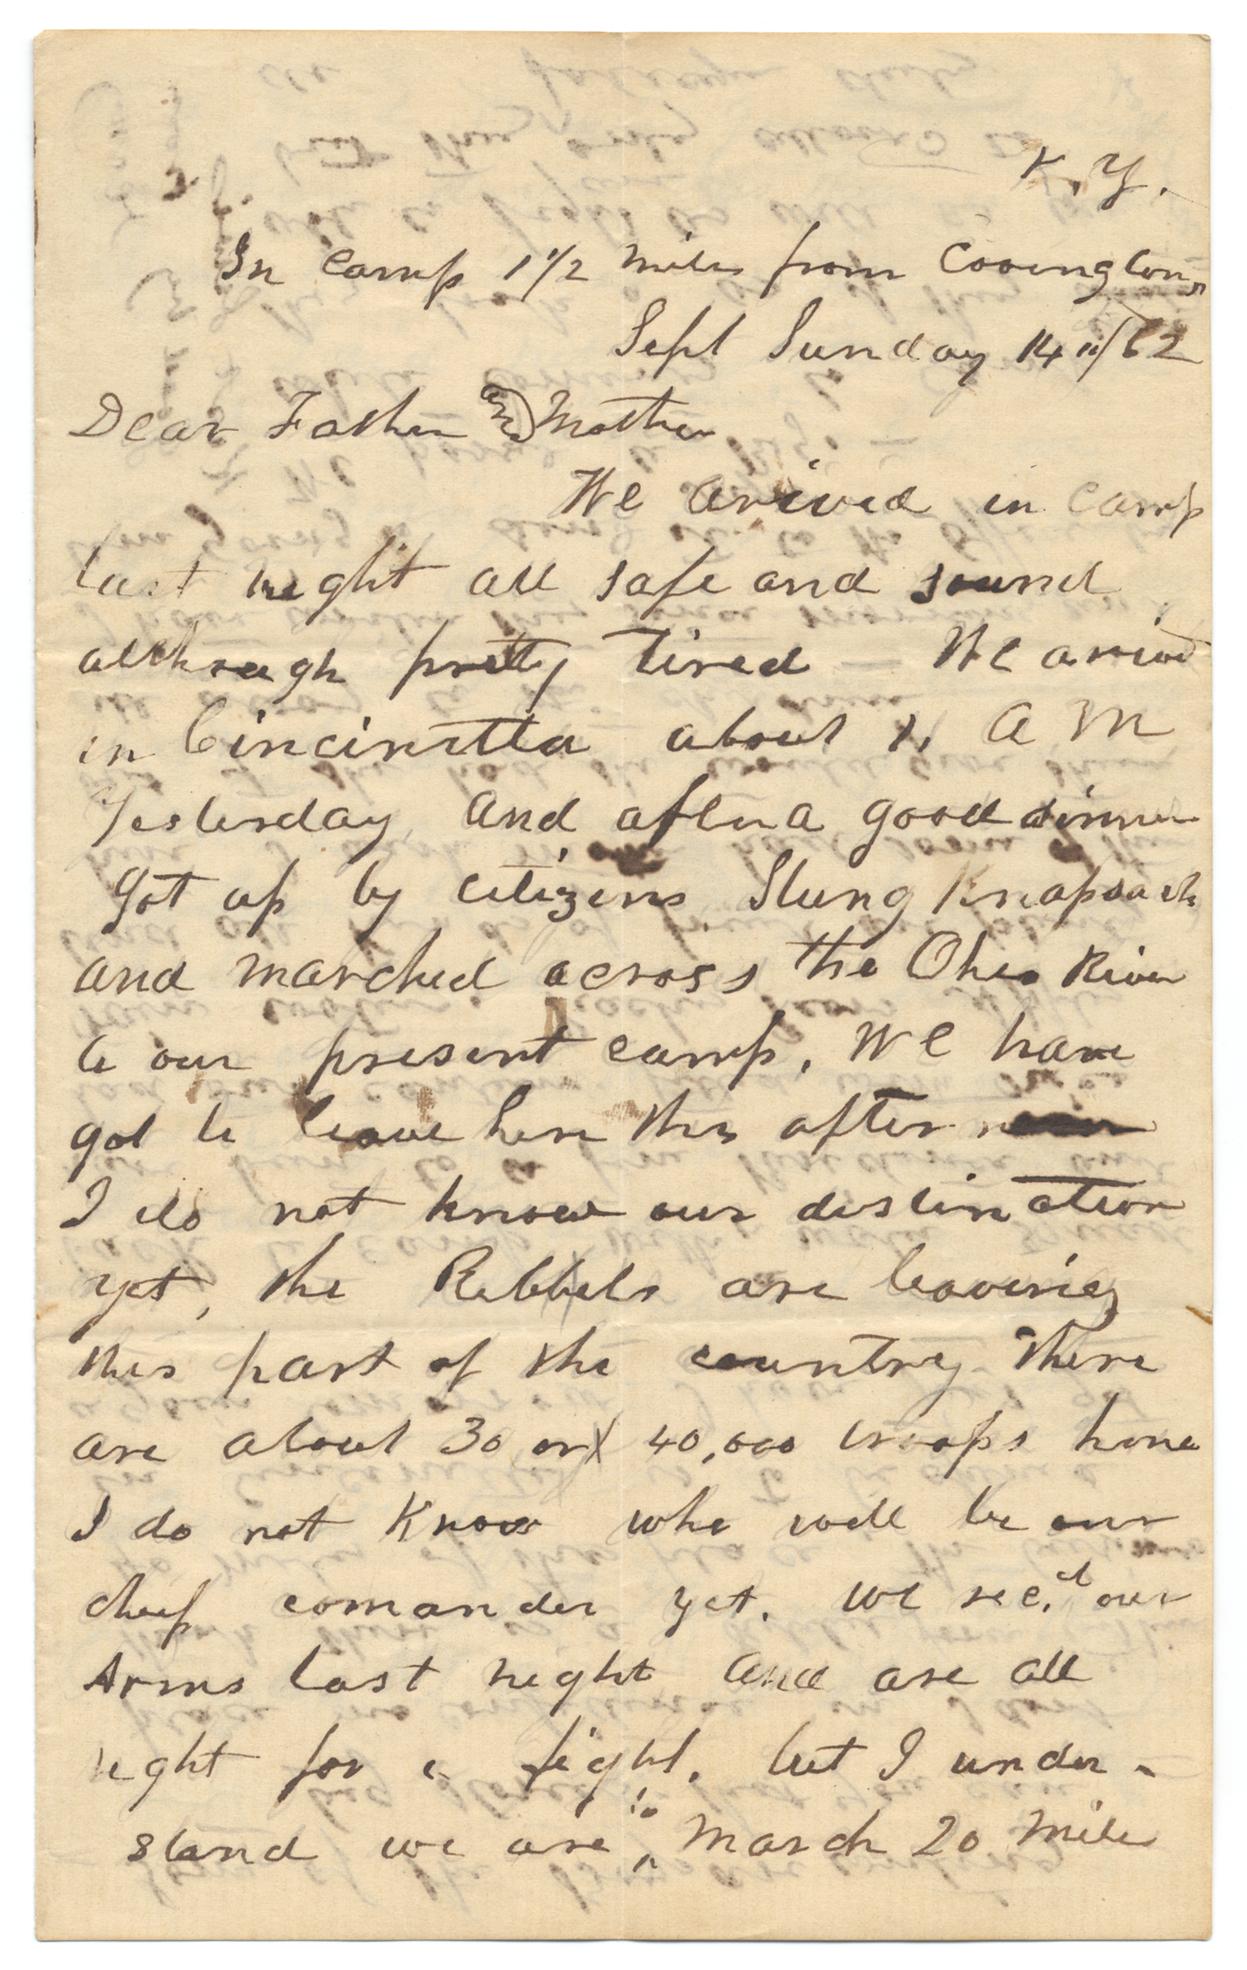 K.Y.
In Camp 1 1/2 miles from Covington
Sept Sunday 14"/62
Dear Father and Mother
We arived in camp
last night all safe and sound
although pretty tired — We arived
in Cincinatta about A M
Yesterday and after a good dinner
got up by citizens Slung Knapsack
and marched across the Ohio River
to our present camp, We have
got to leave here this after noon
I do not know our destination
yet, the Rebbels are leaveing
this part of the country There
are about 30 or 40,000 troops here
I do not Know who will be our
cheif comander yet. we rec.d our
Arms last night and are all
right for a fight, but I under -
stand we are to March 20 Mile